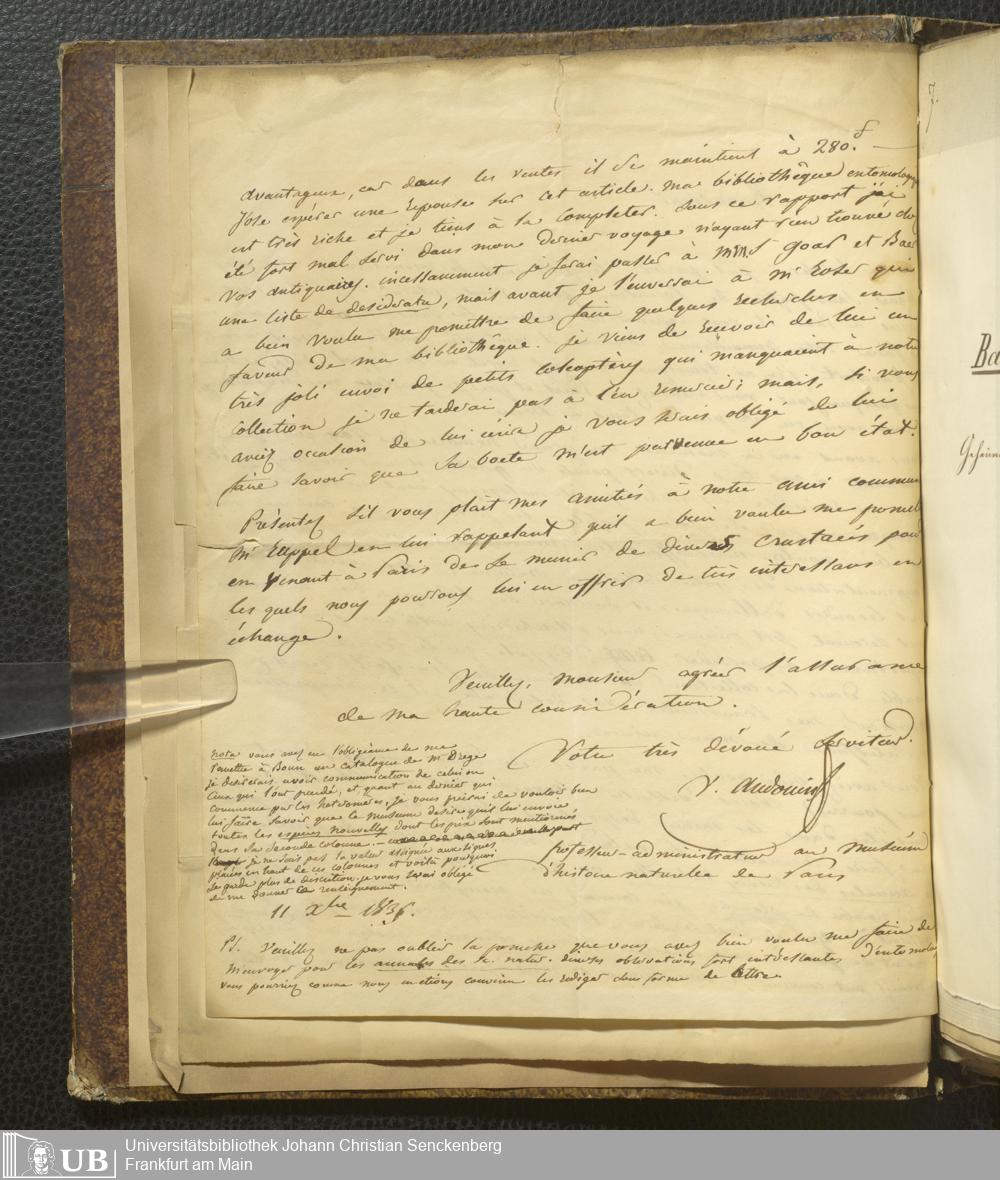 avantageux, car dans les ventes il se maintient à 280.f
J'ose espérer une reponse sur cet article. ma bibliothêque entomologiq
est très riche et je tiens à la completer. sous ce rapport j'ai
été fort mal servi dans mon dernier voyage n'ayant rien trouvé
vos antiquaires. incessamment je ferai passer à mm. S.t Goar et Baer
une liste de desiderata, mais avant je l'enverrai à mr
a bien voulu me promettre de faire quelques recherches en
faveur de ma bibliothêque. je viens de recevoir de lui un
très joli envoi de petits coleoptères qui manquaient à notre
collection je ne tarderai pas à l'en remercier; mais, si vous
aviez occasion de lui écrire je vous serais obligé de lui
faire savoir que sa boete m'est parvenue en bon état.
Présentez s'il vous plait mes amitiés à notre ami commun
Mr Ruppel en lui rappelant qu'il a bien voulu me promet
en venant à Paris de se munir de divers crustacés pour
les quels nous pourrons lui en offrir de très interessans en
échange.
Veuillez, monsieur agréer l'assurance
de ma haute considération.
Votre très dévoué serviteur.
V. Audouin
professeur-administrateur au muséum
d'histoire naturelle de Paris
nota vous avez eu l'obligeance de me
remettre à Bonn un catalogue de Mr Drege
je desirerais avoir communication de celui ou
ceux qui l'ont précédé, et quant au dernier qui
commence par les heteromères, je vous prierai de vouloir bien
lui faire savoir que le museum desire qu'il lui envoie
toutes les espèces nouvelles dont les prix sont mentionnés
dans sa seconde colonne.
je ne sais pas la valeur assignée aux signes
placés en haut de ces colonnes et voilà pourquoi
je garde plus de discretion, je vous serai obligé
de me donner ce renseignement.
11 Xbre 1836.
PS. Veuillez ne pas oublier la promesse que vous avez bien voulu me faire de
m'envoyer pour les annales des sc. natur. diverses observations fort intéressantes d'entomolo
vous pourriez comme nous en étions convenu les rediger sous forme de lettre.
7.
Ba
Geheim
UB
Universitätsbibliothek Johann Christian Senckenberg
Frankfurt am Main